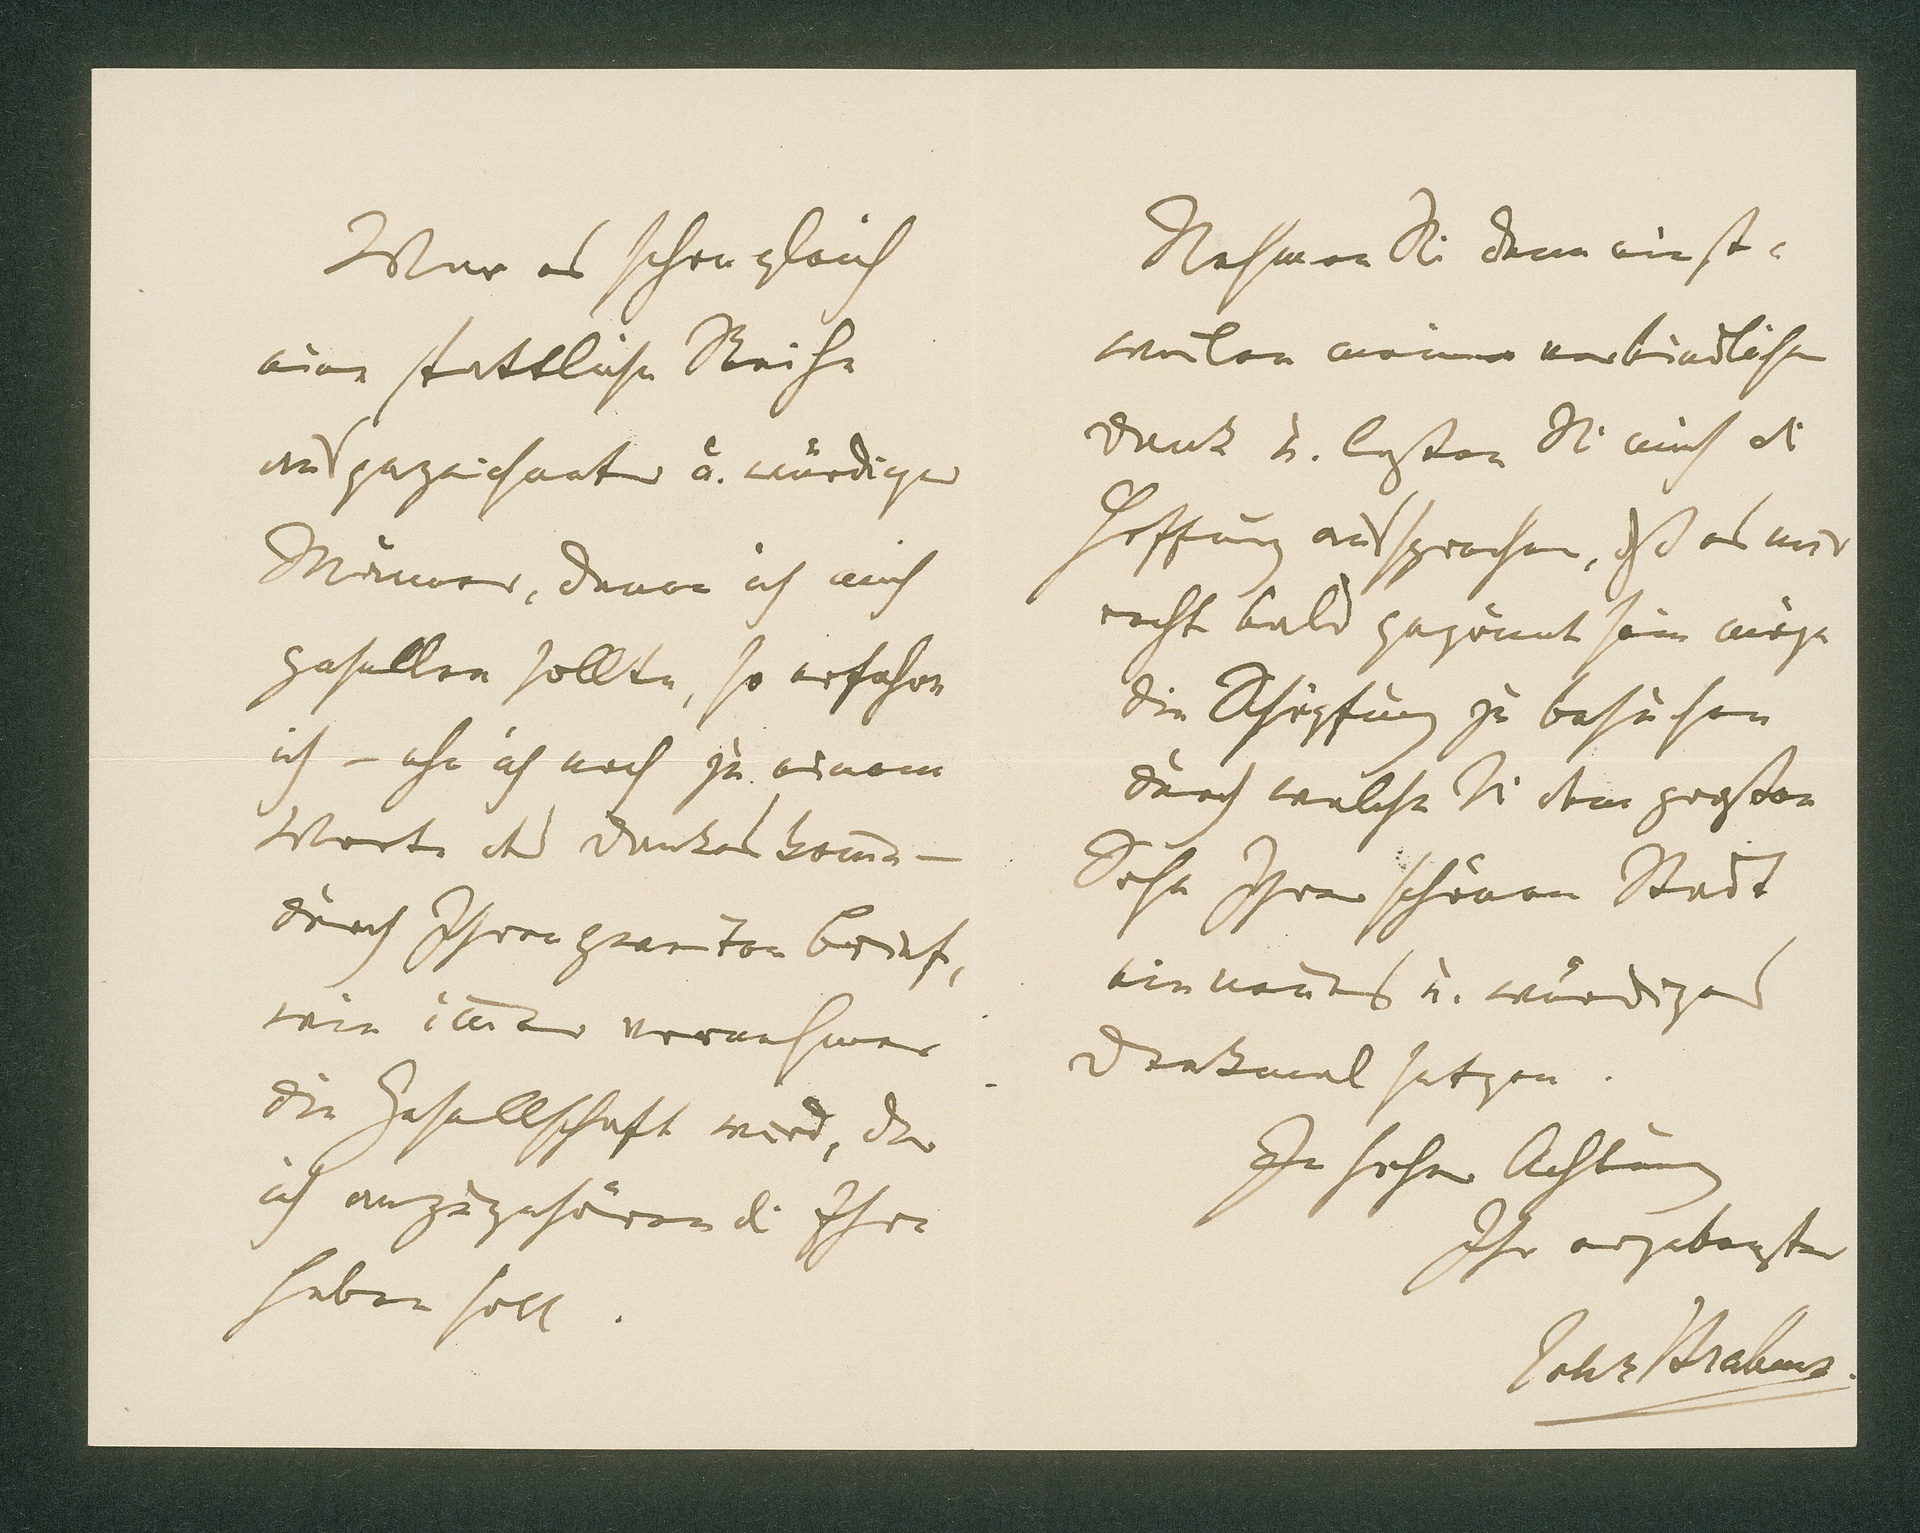 War es schon gleich
eine stattliche Reihe
ausgezeichneter u. würdiger
Männer, denen ich mich
gesellen sollte, so erfahre
ich – ehe ich noch zu einem
Worte des Dankes kom̄e –
durch Ihren zweiten Brief,
wie im̄er vornehmer
die Gesellschaft wird, der
ich anzugehören die Ehre
haben soll.
Nehmen Sie denn einst-
weilen meinen verbindlichen
Dank u. lassen Sie mich die
Hoffnung aussprechen, daß es mir
recht bald gegönnt sein möge
die Schöpfung zu besuchen
durch welche Sie dem großen
Sohn Ihrer schönen Stadt
ein neues u. würdiges
Denkmal setzen.
In hoher Achtung
Ihr ergebenster
Johs Brahms.